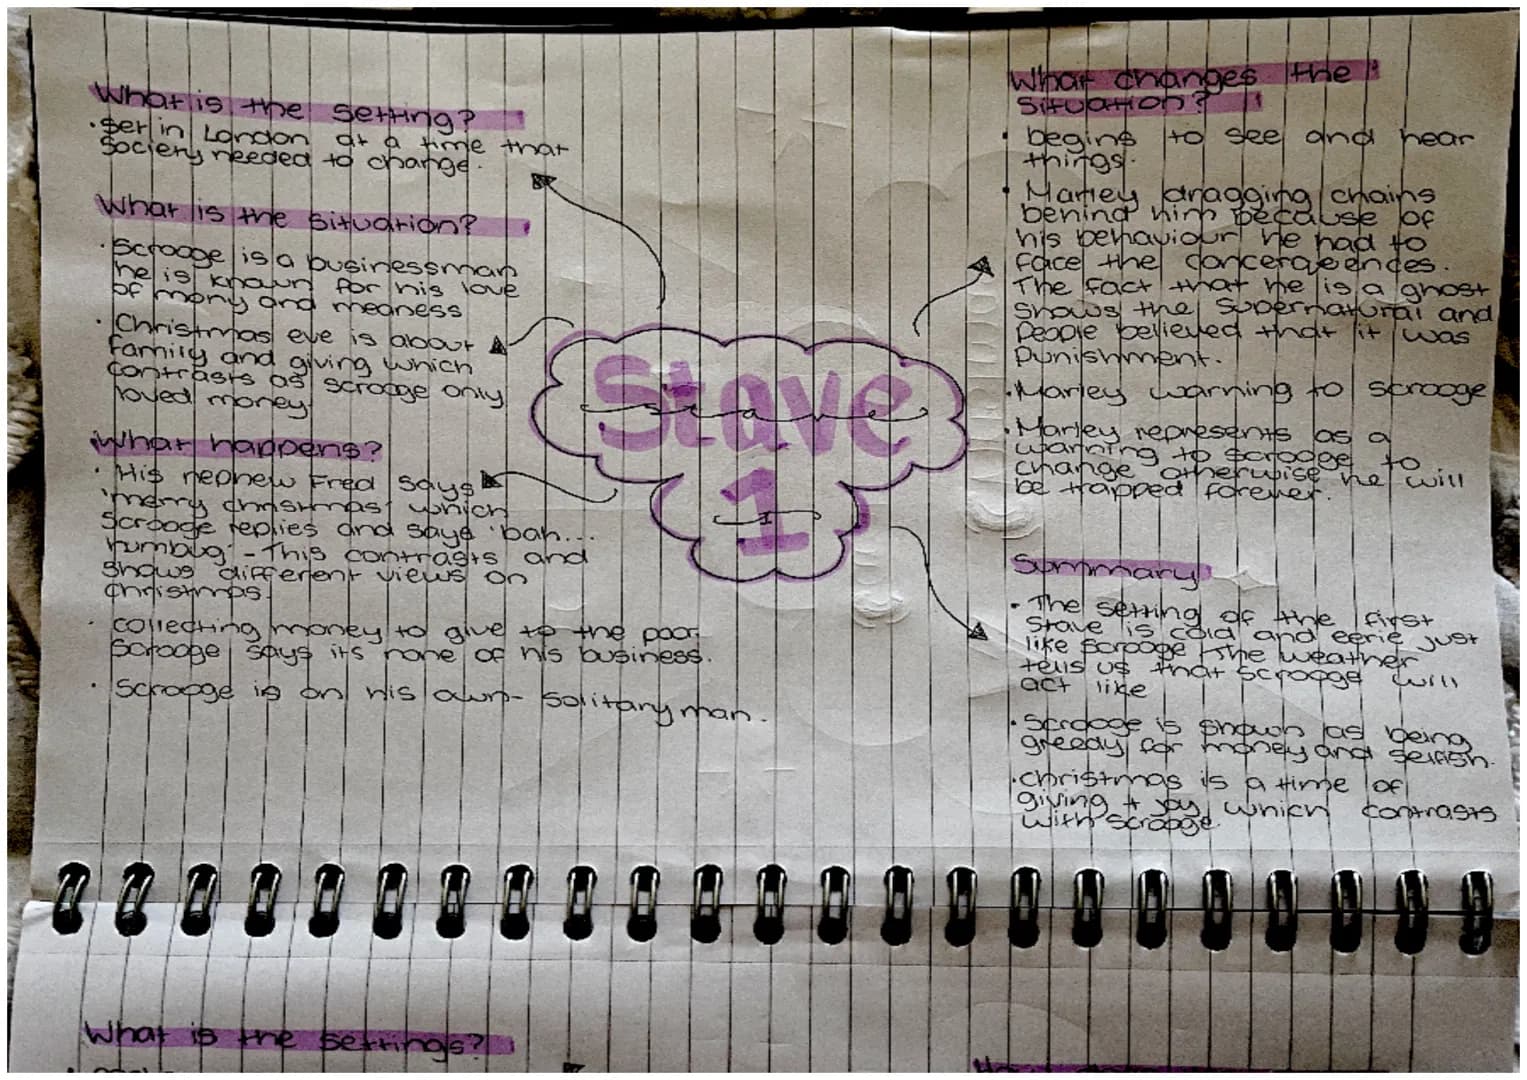 What is the setting?
• set in London at a time that
society needed to change.
What is the situation?
• Scrooge is a businessman
he is known for his love
of mony and meaness
• Christmas eve is about
family and giving which
contrasts as scrooge only
loved money
What happens?
• His nephew Fred says
'merry christmas' which
scrooge replies and says 'bah...
humbug' - This contrasts and
shows different views on
christmas.
• collecting money to give to the poor.
Scrooge says its none of his business.
• Scrooge is on his own - solitary man.
Stave
1
What changes the
situation?
• begins to see and hear
things.
• Marley dragging chains
behind him because of
his behaviour he had to
face the concerqeences.
The fact that he is a ghost
shows the supernatural and
people believed that it was
punishment.
• Marley warning to scrooge
• Marley represents as a
warning to scrooge to
change otherwise he will
be trapped forever.
Summary
• The setting of the first
stave is cold and eerie just
like scrooge the weather
tells us that scrooge will
act like
• Scrooge is shown as being
greedy for money and selfish.
• christmas is a time of
giving + joy which contrasts
with scrooge.
What is the settings?